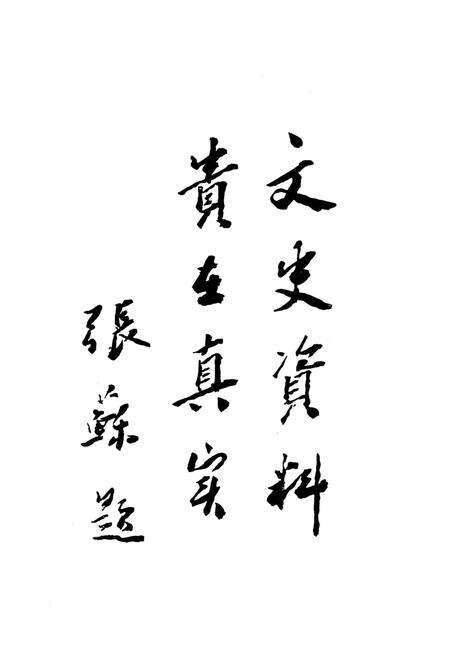 文史資料
貴在真实
張蘇題